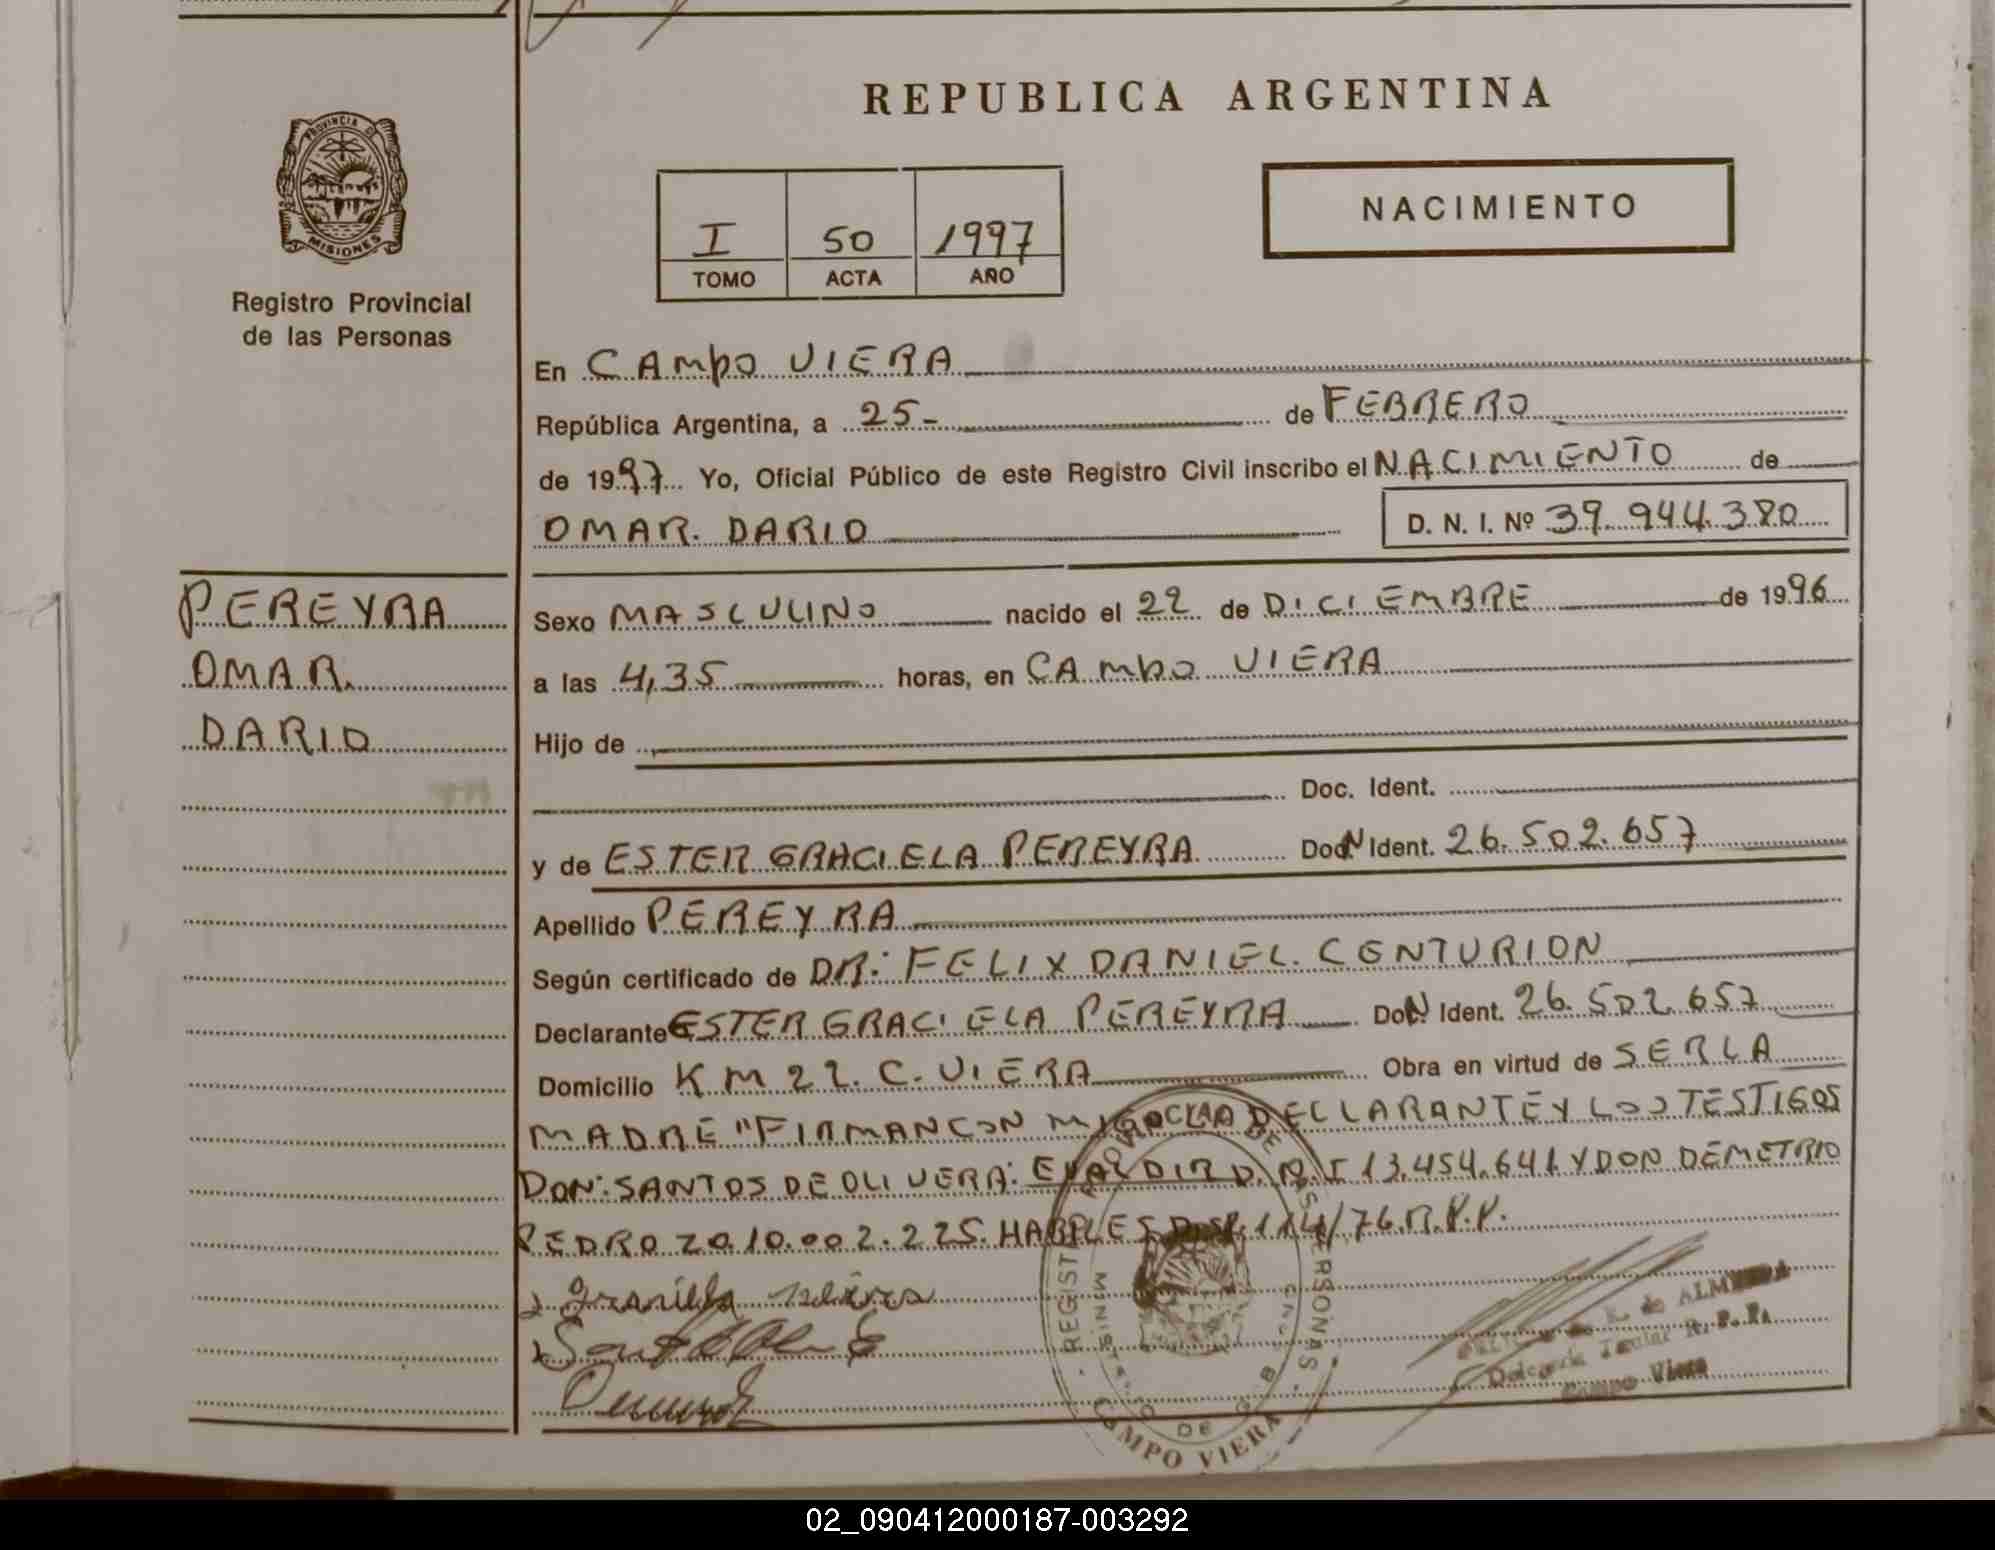 REPUBLICA ARGENTINA
PROVINCIA DE
MISIONES
Registro Provincial
de las Personas
I 50 1997
TOMO ACTA AÑO
NACIMIENTO
En CAMPO VIERA
República Argentina, a 25- de FEBRERO
de 1997 Yo, Oficial Público de este Registro Civil inscribo el NACIMIENTO de
OMAR. DARIO D. N. I. Nº 39.944.380
PEREYRA
OMAR.
DARIO
Sexo MASCULINO nacido el 22 de DICIEMBRE de 1996
a las 4,35 horas, en CAMPO VIERA
Hijo de
Doc. Ident.
y de ESTER GRACIELA PEREYRA Doc. Ident. 26.502.657
Apellido PEREYRA
Según certificado de DR: FELIX DANIEL CENTURION
Declarante ESTER GRACIELA PEREYRA Doc. Ident. 26.502.657
Domicilio KM 22. C. VIERA Obra en virtud de SER LA
MADRE "FIRMAN CON MIGO LA DECLARANTE Y LOS TESTIGOS
DON: SANTOS DE OLIVERA: D.N.I 13.454.641 Y DON DEMETRIO
PEDROZO 10.002.225. HABILES DISP. 114/76.R.P.P.
REGISTRO PROVINCIAL DE LAS PERSONAS
CAMPO VIERA
de ALMEIDA
Delegada Titular R. P. P.
Campo Viera
02_090412000187-003292